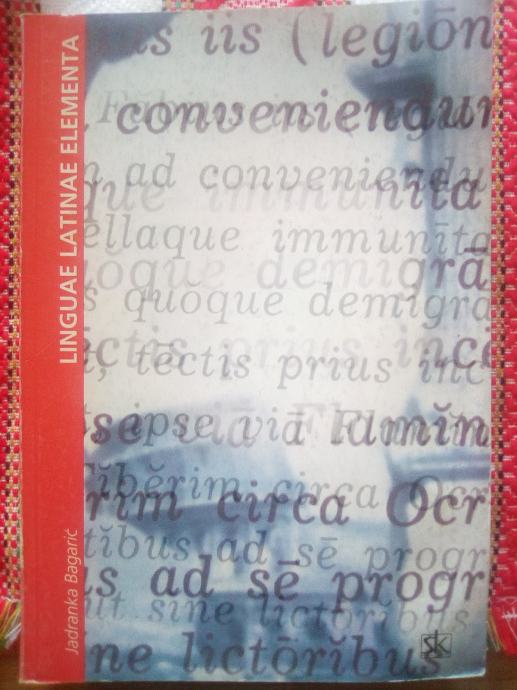 LINGUAE LATINAE ELEMENTA
Jadranka Bagarić
us iis (legiōn
Făbius in
conveniendum
ad conveniendu
que immunita
ellaque immunīta
oque demigrā
s quoque demigra
ectis prius ince
, tēctis prius inc
se viā Flamĭn
ipse viā Flamin
Tĭbĕrim circa Ocr
rim circa Ocr
tĭbus ad sē progr
us ad sē progr
ut sine lictōrĭbus
ne lictōrĭbus
SK